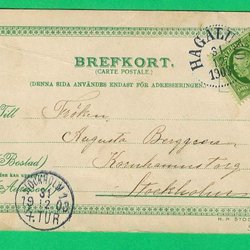 BREFKORT.
(CARTE POSTALE.)
(DENNA SIDA ANVÄNDES ENDAST FÖR ADRESSERINGEN.)
HAGALU
31
190
Till
Fröken
Augusta Berggren
(Bostad)
Kornhamnstorg
Stockholm
STOCKHOLM
31
19 12 03
4. TUR